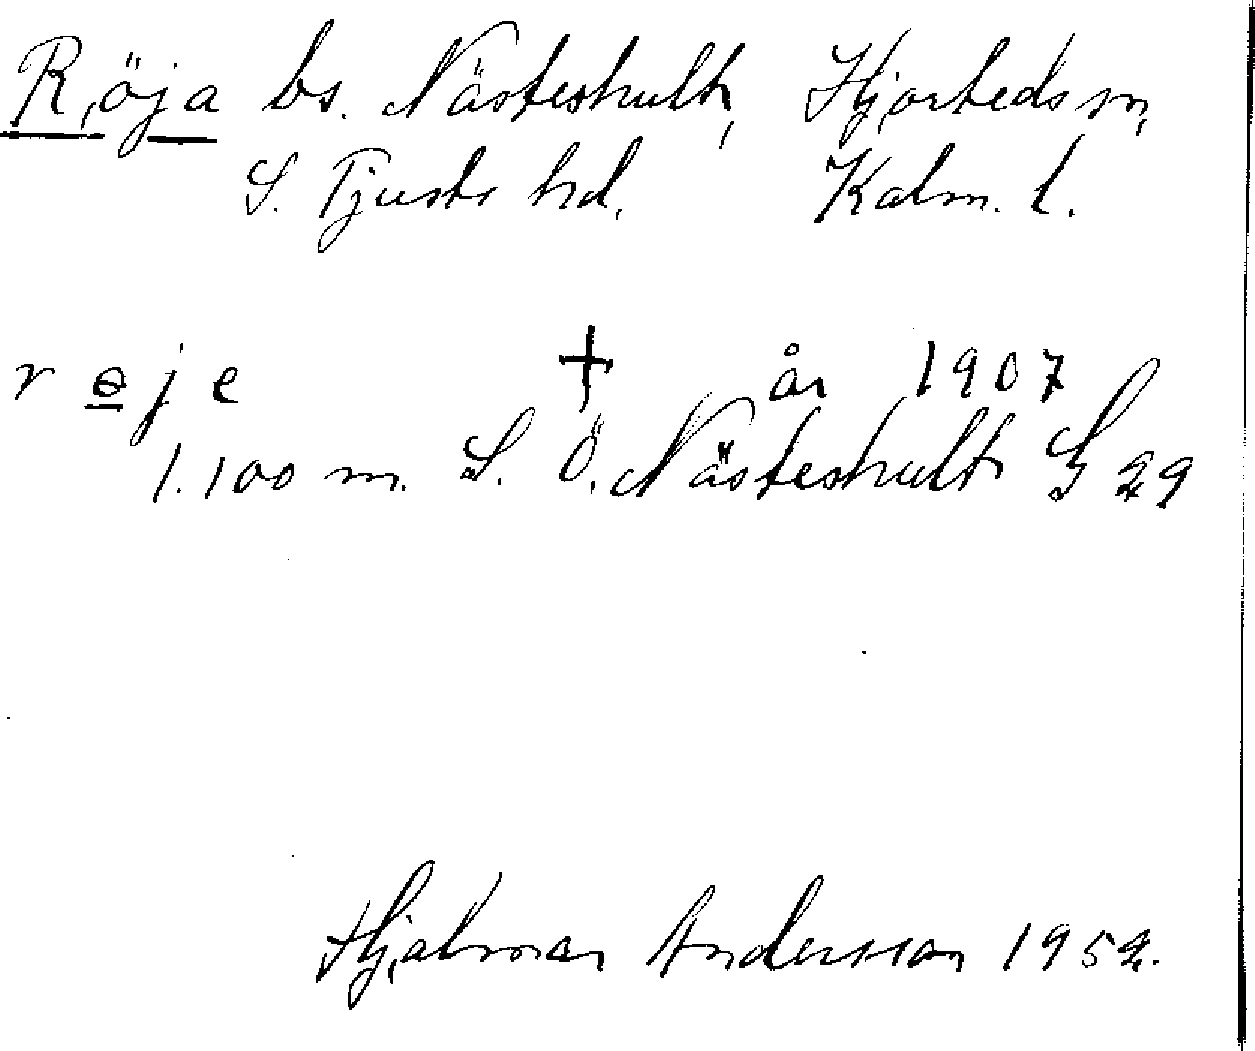 Röja bs. Nästeshult, Hjorteds sn,
S. Tjusts hd. Kalm. l.
r ɵ j e † år 1907
1.100 m. S. Ö. Nästeshult G 29
Hjalmar Andersson 1952.